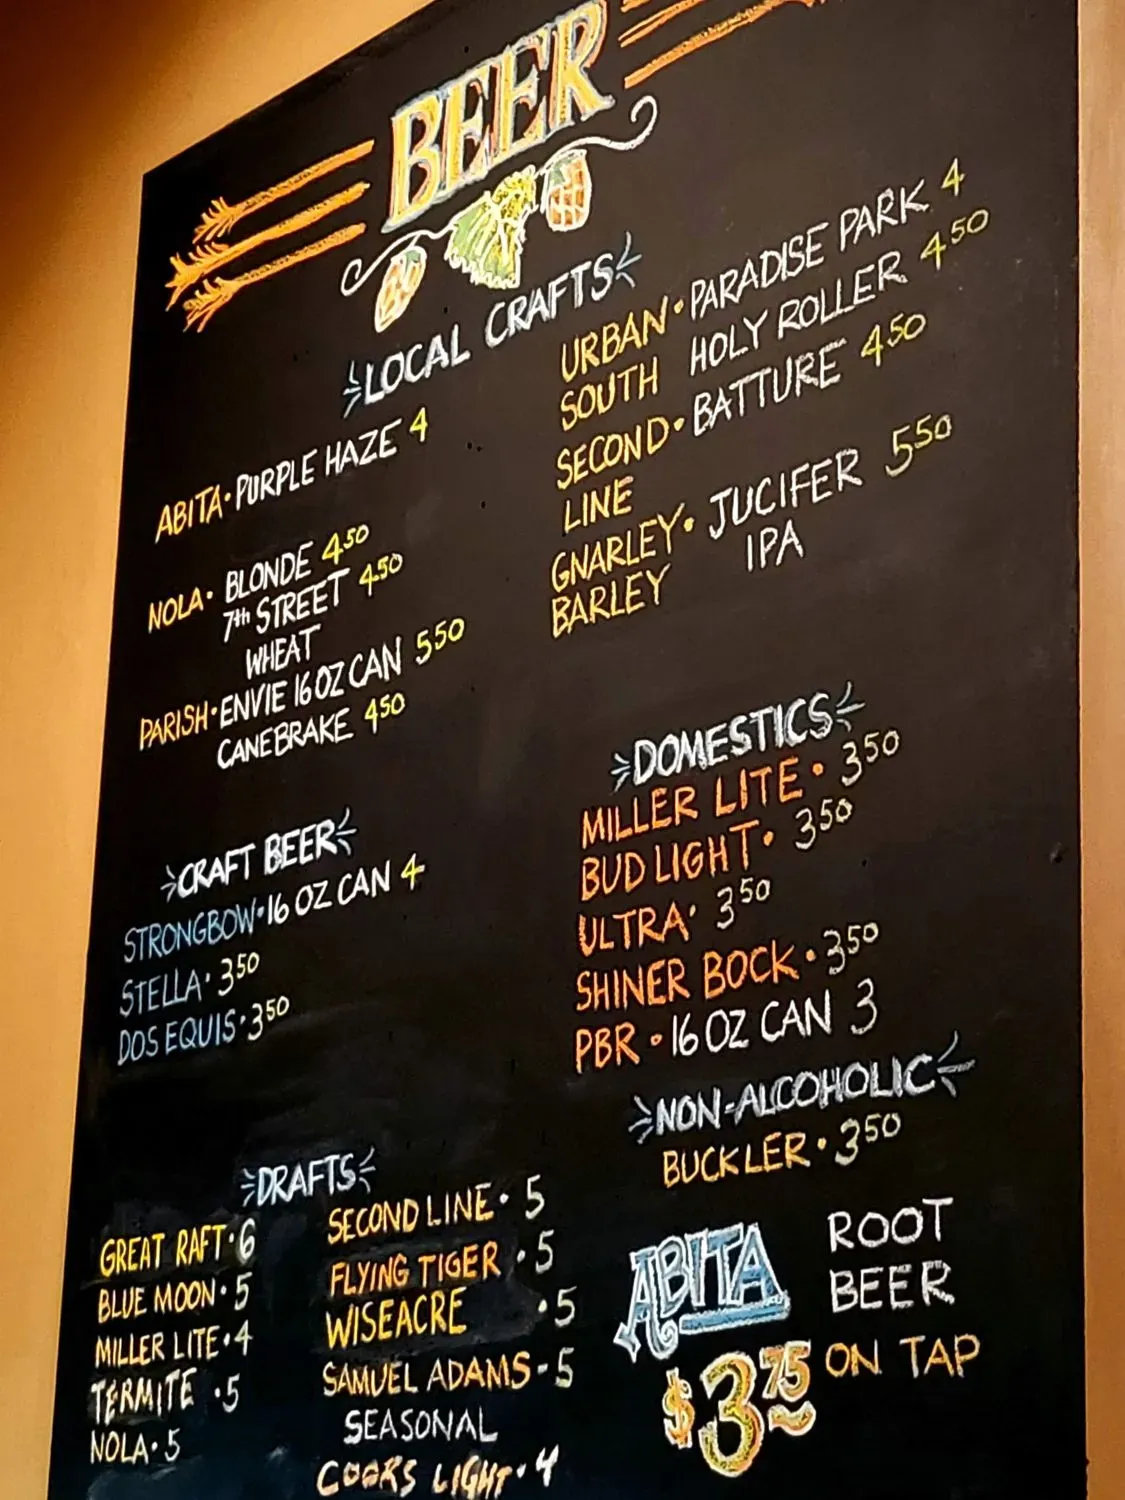 BEER
LOCAL CRAFTS
ABITA • PURPLE HAZE 4
NOLA • BLONDE 4 50
7th STREET 4 50
WHEAT
PARISH • ENVIE 16 OZ CAN 5 50
CANEBRAKE 4 50
URBAN • PARADISE PARK 4
SOUTH HOLY ROLLER 4 50
SECOND • BATTURE 4 50
LINE
GNARLEY • JUCIFER 5 50
BARLEY IPA
CRAFT BEER
STRONGBOW • 16 OZ CAN 4
STELLA • 3 50
DOS EQUIS • 3 50
DOMESTICS
MILLER LITE • 3 50
BUD LIGHT • 3 50
ULTRA • 3 50
SHINER BOCK • 3 50
PBR • 16 OZ CAN 3
NON-ALCOHOLIC
BUCKLER • 3 50
DRAFTS
GREAT RAFT • 6
BLUE MOON • 5
MILLER LITE • 4
TERMITE • 5
NOLA • 5
SECOND LINE • 5
FLYING TIGER • 5
WISEACRE • 5
SAMUEL ADAMS - 5
SEASONAL
COORS LIGHT • 4
ABITA ROOT
BEER
$3 75 ON TAP